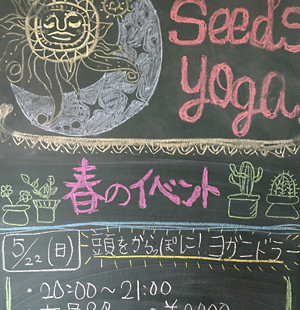 Seeds
yoga
春のイベント
5/22(日) 頭をからっぽに!ヨガニドラー
・20:00~21:00